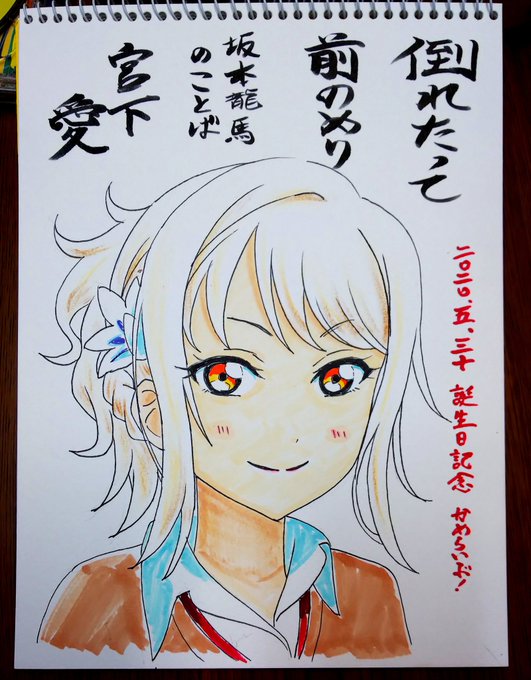 倒れたって
前のめり
坂本龍馬
のことば
宮下
愛
二〇二〇、五、三十 誕生日記念 かめらいぶ!